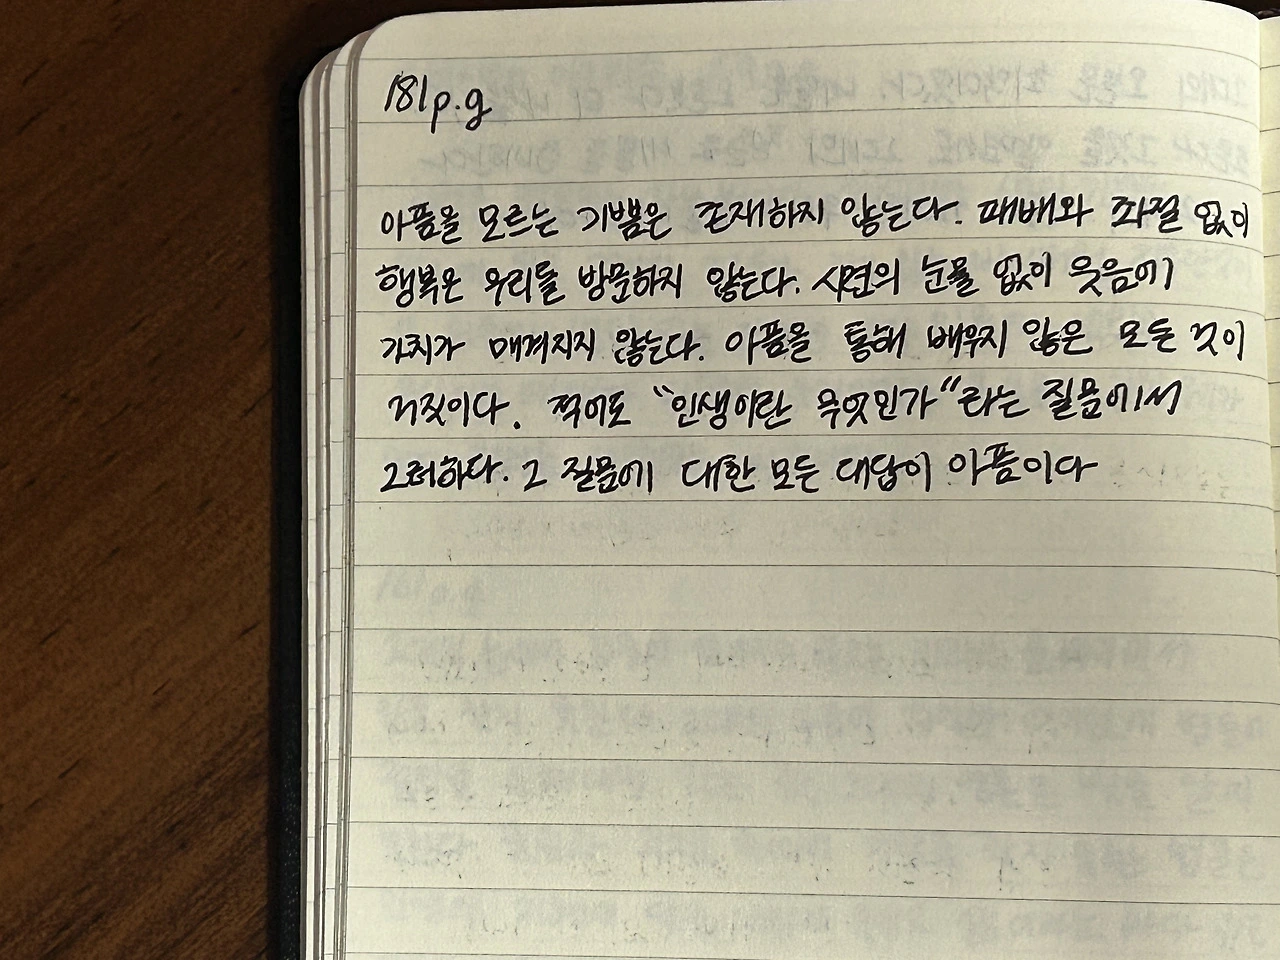 181p.g
아픔을 모르는 기쁨은 존재하지 않는다. 패배와 좌절 없이
행복은 우리를 방문하지 않는다. 시련의 눈물 없이 웃음에
가치가 매겨지지 않는다. 아픔을 통해 배우지 않은 모든 것이
거짓이다. 적어도 "인생이란 무엇인가"라는 질문에서
그러하다. 그 질문에 대한 모든 대답이 아픔이다